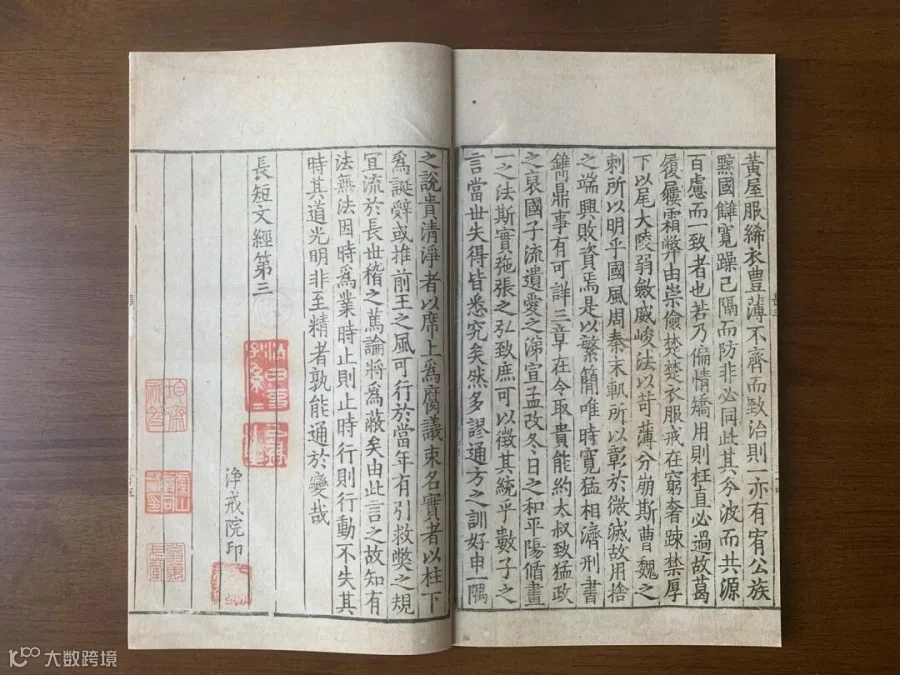 黃屋服絺衣豊薄不齊而致治則一亦有宥公族
黥國讎寬躁己隔而防非必同此其分波而共源
百慮而一致者也若乃偏情矯用則枉直必過故葛
履屨霜弊由崇儉楚楚衣服戒在窮奢踈禁厚
下以尾大陵弱斂威峻法以苛薄分崩斯曹魏之
刺所以明乎國風周秦末軌所以彰於微滅故用捨
之端興敗資焉是以繁簡唯時寬猛相濟刑書
鐫鼎事有可詳三章在令取貴能約太叔致猛政
之哀國子流遺愛之涕宣孟改冬日之和平陽偱畫
一之法斯實弛張之弘致庶可以徵其統乎數子之
言當世失得皆悉究矣然多謬通方之訓好申一隅
之說貴清淨者以席上爲腐議束名實者以柱下
爲誕辭或推前王之風可行於當年有引救弊之規
宜流於長世稽之篤論將爲蔽矣由此言之故知有
法無法因時爲業時止則止時行則行動不失其
時其道光明非至精者孰能通於變哉
長短文經第三
淨戒院印
大数跨境